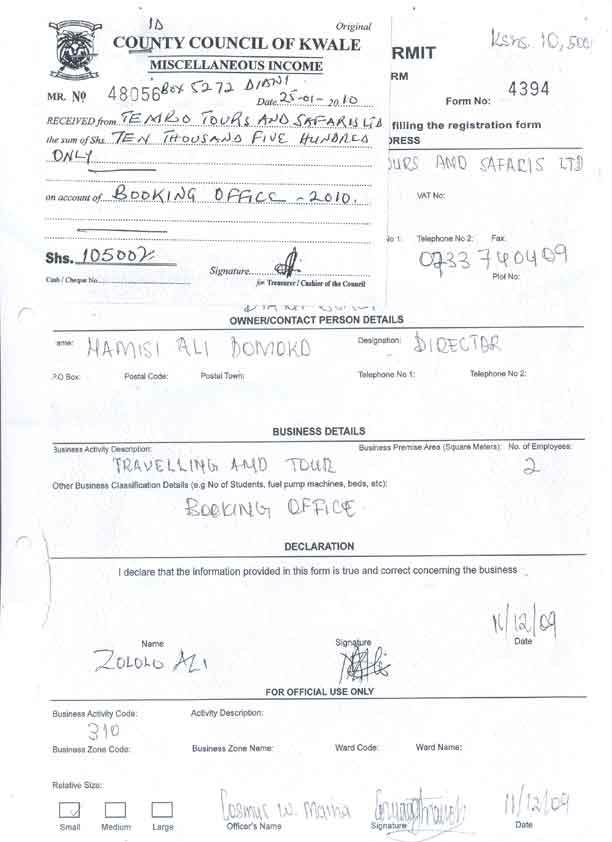 1D
Original
COUNTY COUNCIL OF KWALE
MISCELLANEOUS INCOME
MR. No 48056 BOX 5272 DIANI
Date. 25-01- 2010
RECEIVED from TEMBO TOURS AND SAFARIS LTD
the sum of Shs. TEN THOUSAND FIVE HUNDRED
ONLY
on account of BOOKING OFFICE - 2010.
Shs. 10500/=
Signature
Cash / Cheque No.
for Treasurer / Cashier of the Council
Kshs. 10,500/
RMIT
RM
4394
Form No:
filling the registration form
DRESS
OURS AND SAFARIS LTD
VAT No:
No 1: Telephone No 2: Fax:
0733 740409
Plot No:
OWNER/CONTACT PERSON DETAILS
ame: HAMISI ALI DOMOKO Designation: DIRECTOR
P.O Box: Postal Code: Postal Town: Telephone No 1: Telephone No 2:
BUSINESS DETAILS
Business Activity Description: Business Premise Area (Square Meters): No. of Employees:
TRAVELLING AND TOUR 2
Other Business Classification Details (e.g No of Students, fuel pump machines, beds, etc):
BOOKING OFFICE
DECLARATION
I declare that the information provided in this form is true and correct concerning the business
11/12/09
Name Signature Date
ZOLOLO ALI
FOR OFFICIAL USE ONLY
Business Activity Code: Activity Description:
310
Business Zone Code: Business Zone Name: Ward Code: Ward Name:
Relative Size:
Cosmus W. Maina 11/12/09
Small Medium Large Officer's Name Signature Date